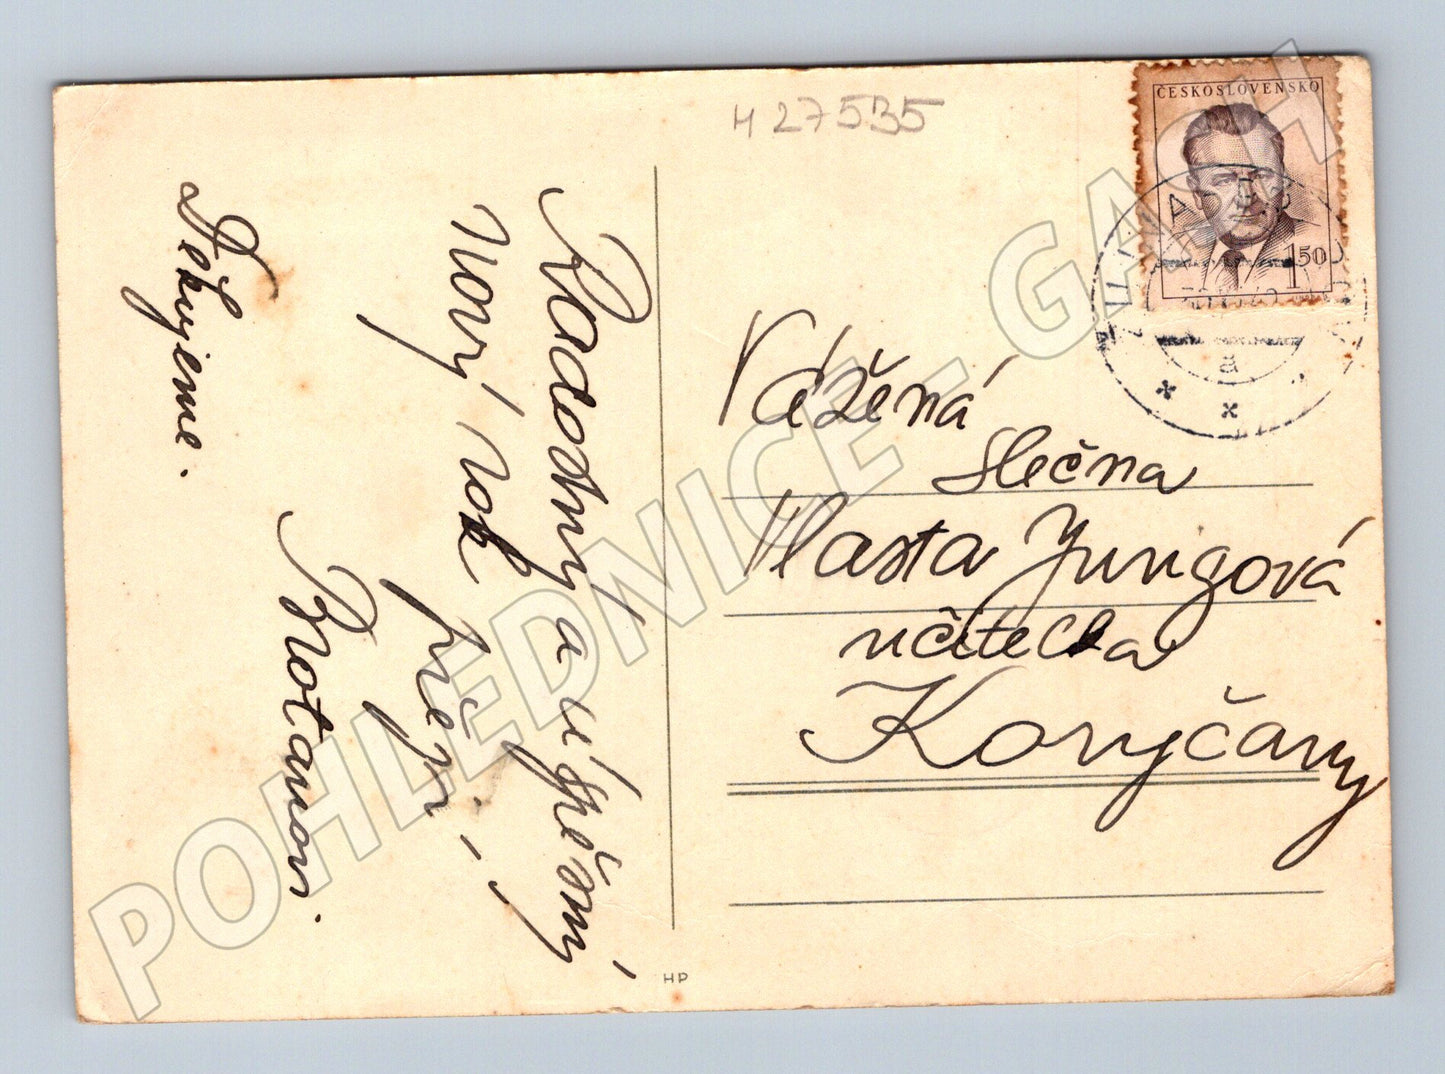 H 27535
ČESKOSLOVENSKO
1.50
a
Radostný a úspěšný
Nový rok
přejí
Brotanovi.
Děkujeme.
Vážená
slečna
Vlasta Jungová
učitelka
Koryčany
HP
POHLEDNICE - GASH